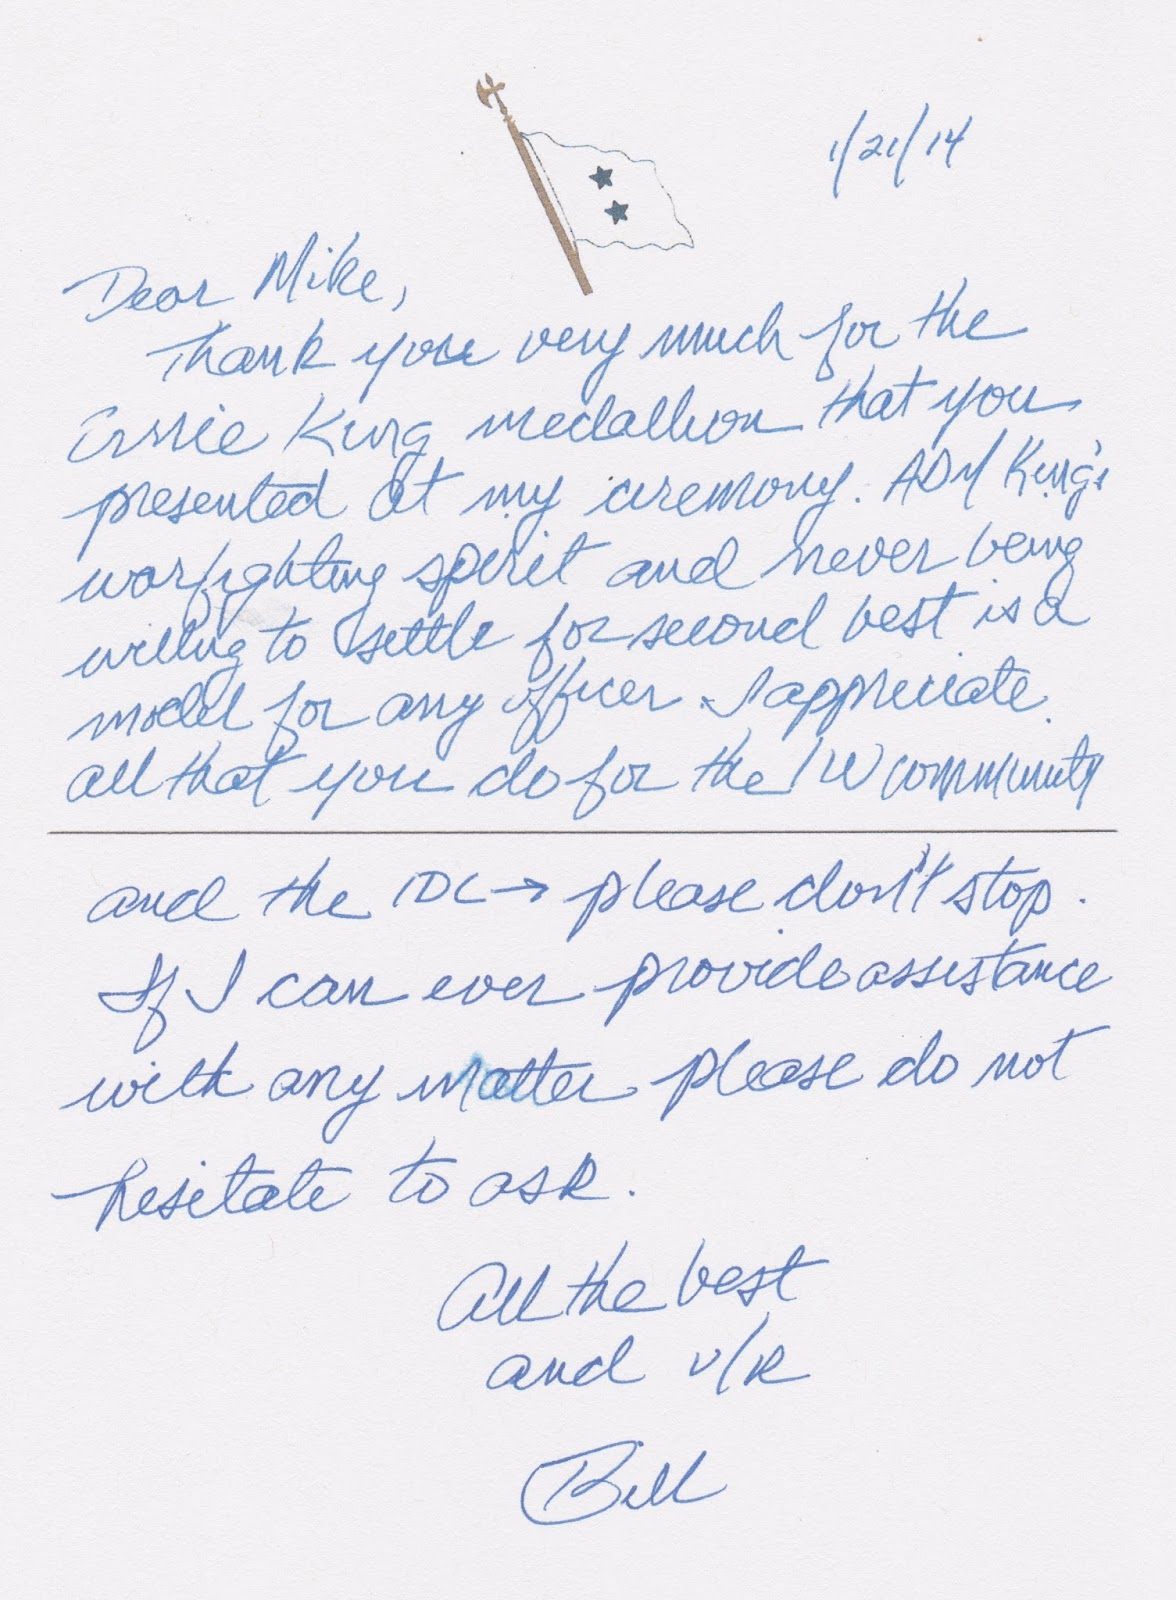 1/21/14
Dear Mike,
Thank you very much for the
Ernie King medallion that you
presented at my ceremony. ADM King's
warfighting spirit and never being
willing to settle for second best is a
model for any officer. I appreciate
all that you do for the IW community
and the IDC → please don't stop.
If I can ever provide assistance
with any matter please do not
hesitate to ask.
All the best
and V/R
Bill